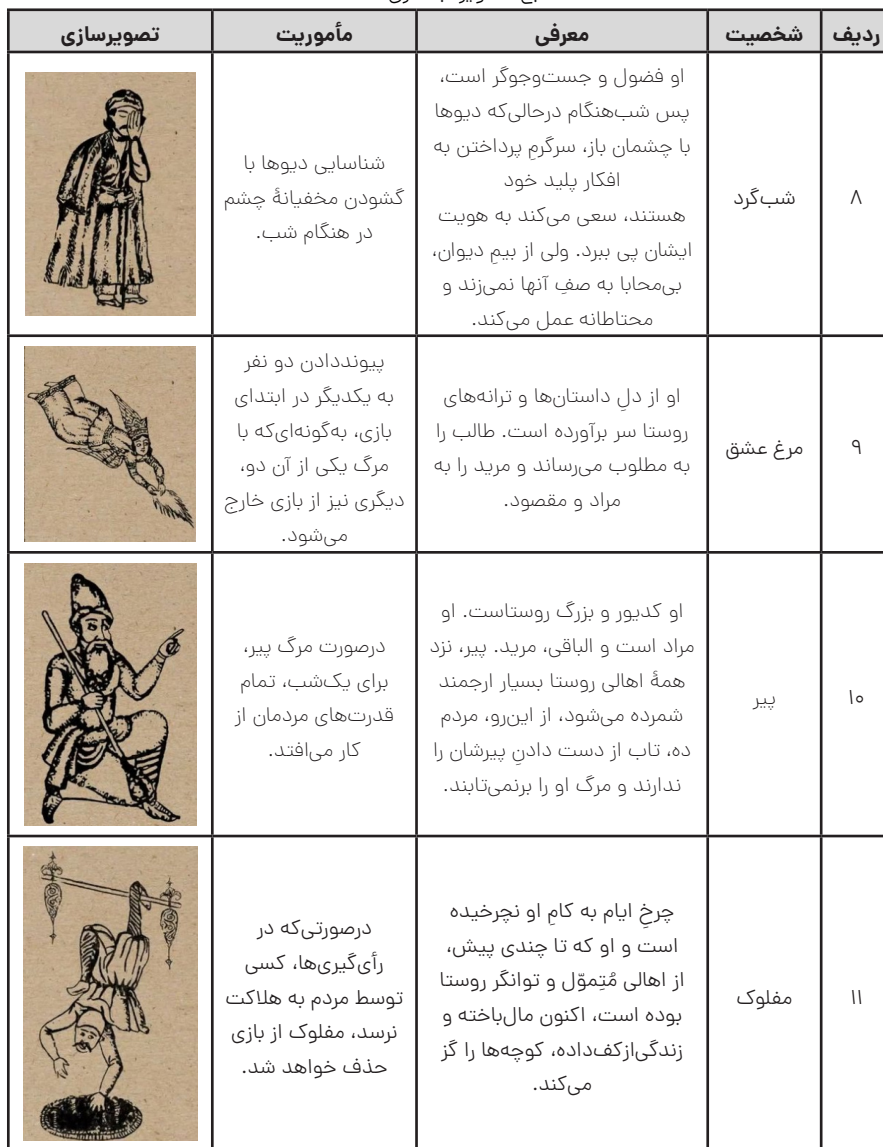 ردیف	شخصیت	معرفی	مأموریت	تصویرسازی
۸
شب‌گرد
او فضول و جست‌وجوگر است،
پس شب‌هنگام درحالی‌که دیوها
با چشمان باز، سرگرمِ پرداختن به
افکار پلید خود
هستند، سعی می‌کند به هویت
ایشان پی ببرد. ولی از بیمِ دیوان،
بی‌محابا به صفِ آنها نمی‌زند و
محتاطانه عمل می‌کند.
شناسایی دیوها با
گشودن مخفیانهٔ چشم
در هنگام شب.
۹
مرغ عشق
او از دلِ داستان‌ها و ترانه‌های
روستا سر برآورده است. طالب را
به مطلوب می‌رساند و مرید را به
مراد و مقصود.
پیونددادن دو نفر
به یکدیگر در ابتدای
بازی، به‌گونه‌ای‌که با
مرگ یکی از آن دو،
دیگری نیز از بازی خارج
می‌شود.
۱۰
پیر
او کدیور و بزرگ روستاست. او
مراد است و الباقی، مرید. پیر، نزد
همهٔ اهالی روستا بسیار ارجمند
شمرده می‌شود، از این‌رو، مردم
ده، تاب از دست دادنِ پیرشان را
ندارند و مرگ او را برنمی‌تابند.
درصورت مرگ پیر،
برای یک‌شب، تمام
قدرت‌های مردمان از
کار می‌افتد.
۱۱
مفلوک
چرخِ ایام به کامِ او نچرخیده
است و او که تا چندی پیش،
از اهالی مُتِموّل و توانگر روستا
بوده است، اکنون مال‌باخته و
زندگی‌ازکف‌داده، کوچه‌ها را گز
می‌کند.
درصورتی‌که در
رأی‌گیری‌ها، کسی
توسط مردم به هلاکت
نرسد، مفلوک از بازی
حذف خواهد شد.